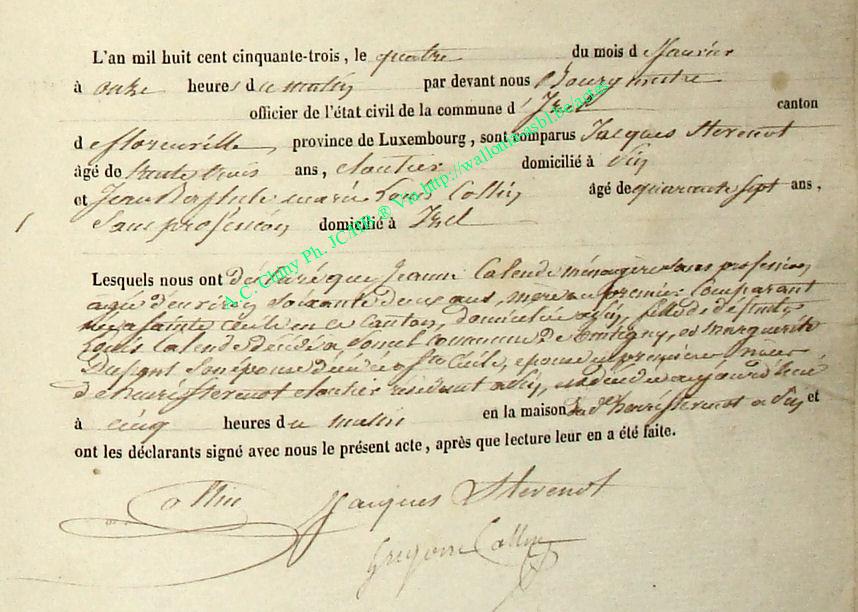 L'an mil huit cent cinquante-trois, le quatre du mois d fevrier
à onze heures du matin par devant nous Bourgmestre
officier de l'état civil de la commune d'Izel canton
de florenville province de Luxembourg, sont comparus Jacques Stevenot
âgé de trente trois ans, cloutier domicilié à
et Jean Baptiste marie Louis Collin âgé de quarante sept ans,
Sans profession domicilié à Izel
A.C Chiny Ph. JC MB ® Via http://wallonia-asbl.be/actes
Lesquels nous ont déclaré que Jeanne Lalende ménagère sans profession
agée d'environ soixante deux ans, mère du premier Comparant
née a sainte Cécile en ce Canton, domiciliée a fille de defunts
Louis Lalende décédé a commune de et Marguerite
Dupont son épouse décédée a Ste Cécile, epouse en premiere
de henri Stevenot cloutier residant a est décédée aujourd'hui
à cinq heures du matin en la maison du dt henri Stevenot a et
ont les déclarants signé avec nous le présent acte, après que lecture leur en a été faite.
Collin Jacques Stevenot
Gregoire Collin